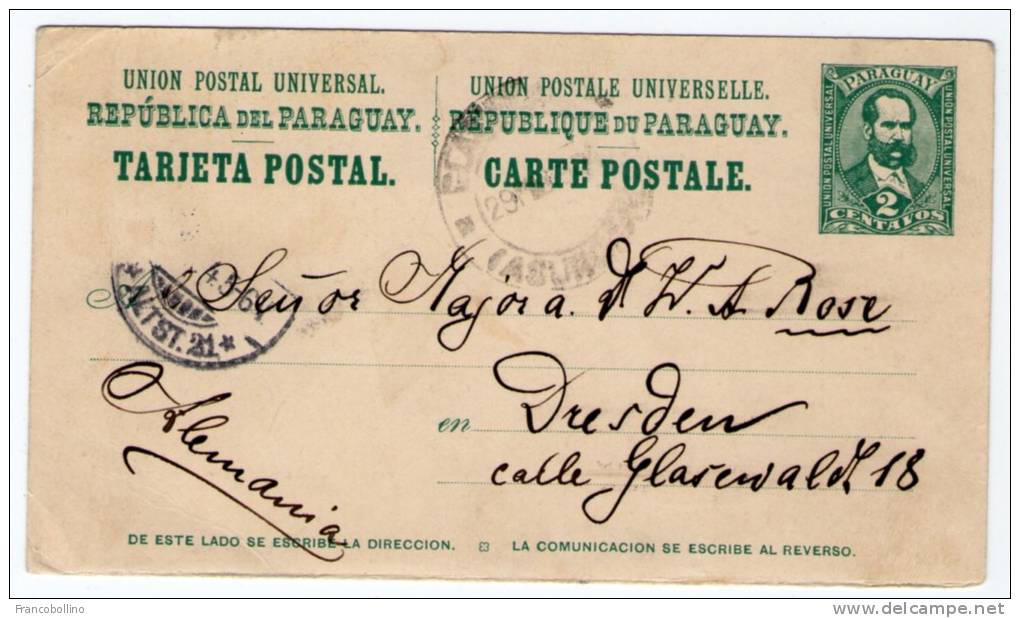 UNION POSTAL UNIVERSAL.
REPÚBLICA DEL PARAGUAY.
TARJETA POSTAL.
UNION POSTALE UNIVERSELLE.
RÉPUBLIQUE DU PARAGUAY.
CARTE POSTALE.
PARAGUAY
UNION POSTAL UNIVERSAL
UNION POSTAL UNIVERSAL
2
CENTAVOS
29
(ASUNCION)
ALTST. 21
Señor Major a. D. W. A. Rose
en Dresden
calle Glasewaldt 18
Alemania
DE ESTE LADO SE ESCRIBE LA DIRECCION.
LA COMUNICACION SE ESCRIBE AL REVERSO.
Francobollino
delcampe.net